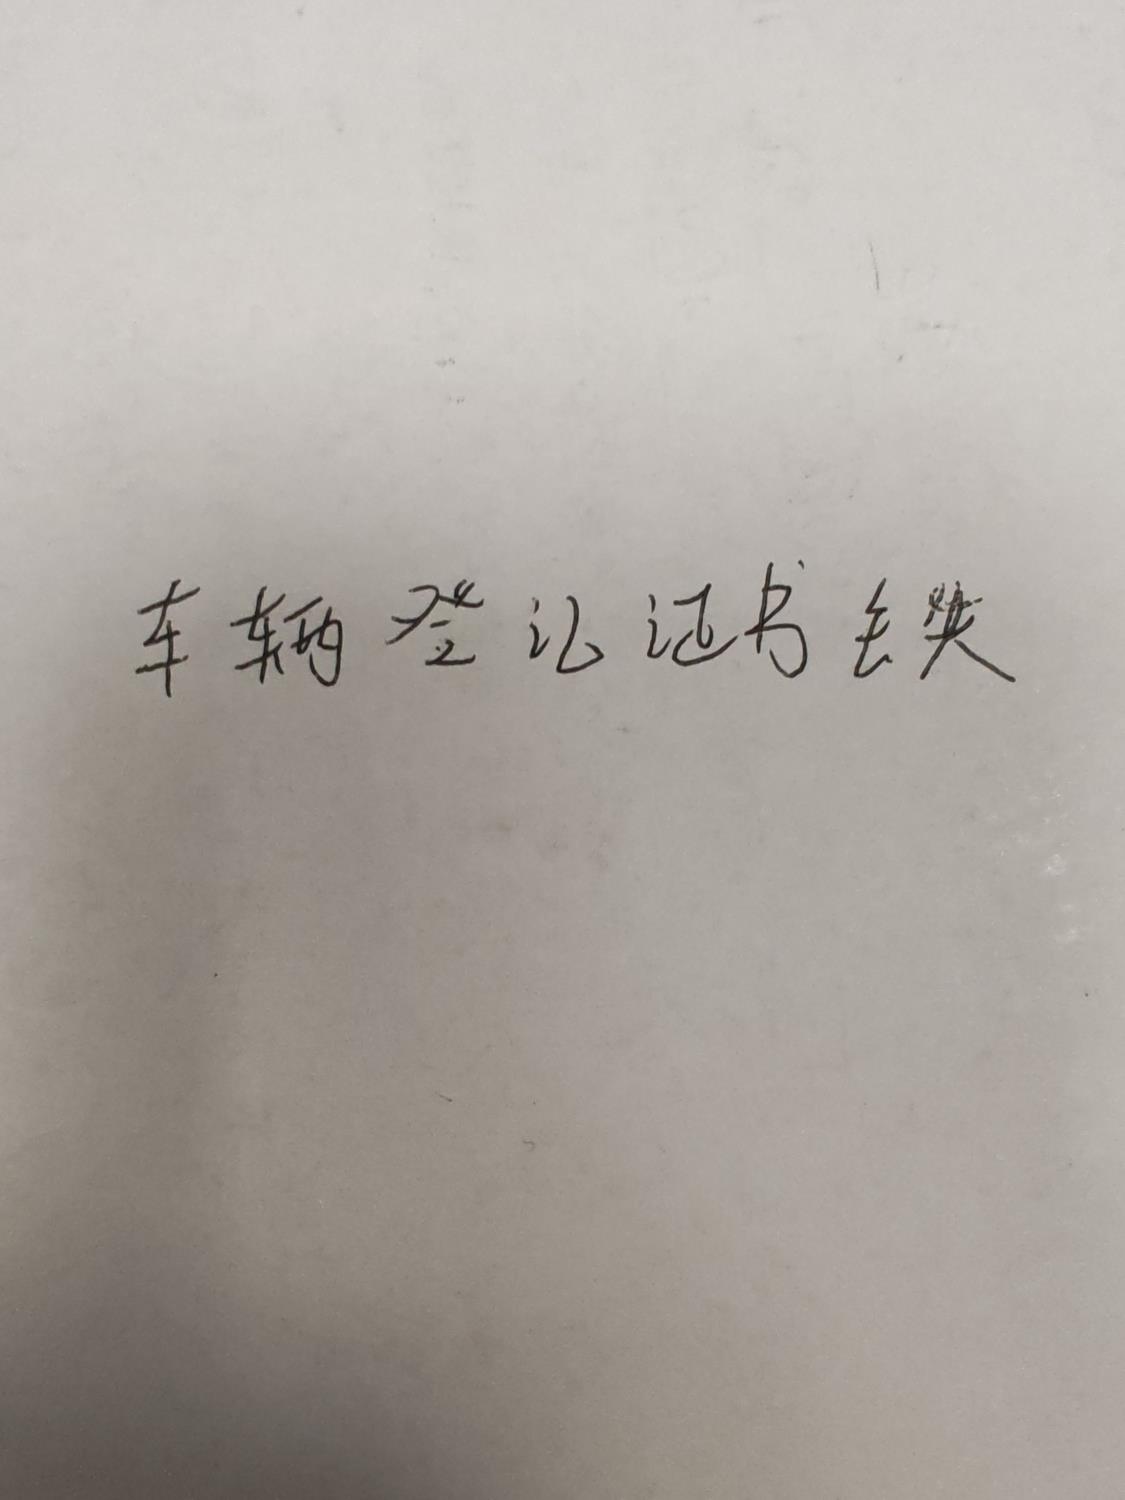 车辆登记证书丢失